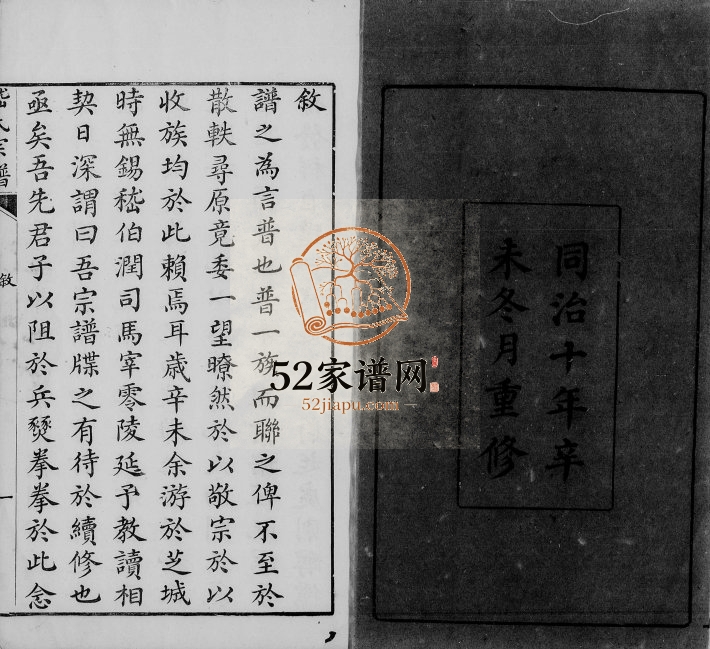 同治十年辛
未冬月重修
敘
譜之為言普也普一族而聯之俾不至於
散軼尋原竟委一望瞭然於以敬宗於以
收族均於此賴焉耳歲辛未余游於芝城
時無錫嵇伯潤司馬宰零陵延予教讀相
契日深謂曰吾宗譜牒之有待於續修也
亟矣吾先君子以阻於兵燹拳拳於此念
嵇氏宗譜
敘
一
52家谱网
52jiapu.com